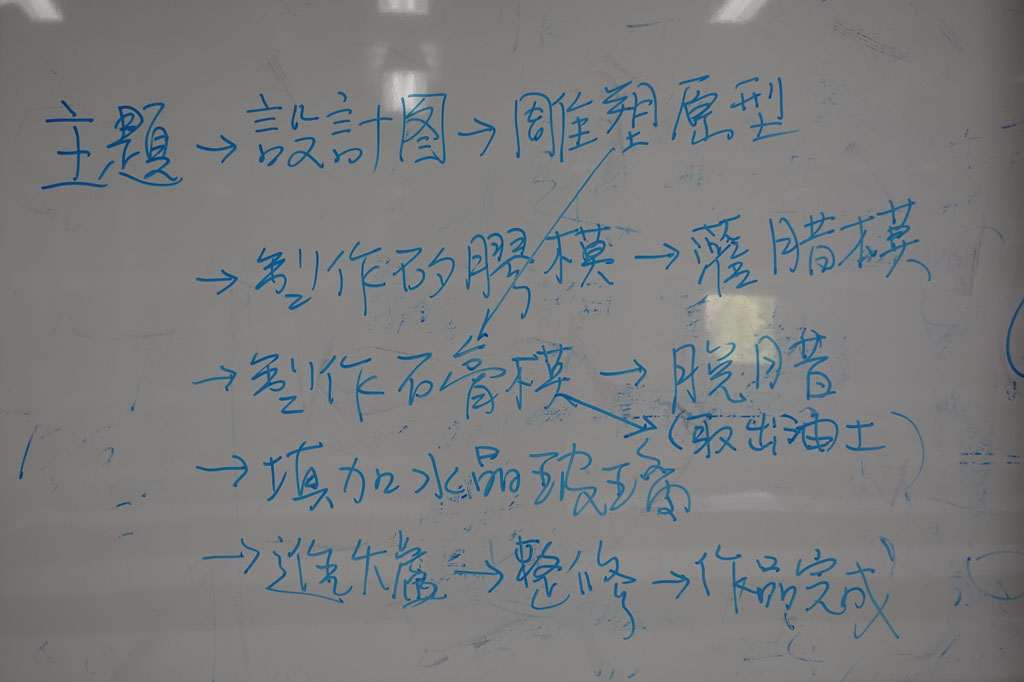 主題→設計图→雕塑原型
→製作矽膠模→灌腊模
→製作石膏模→脱腊
(取出油土)
→填加水晶玻璃
→進爐→整修→作品完成